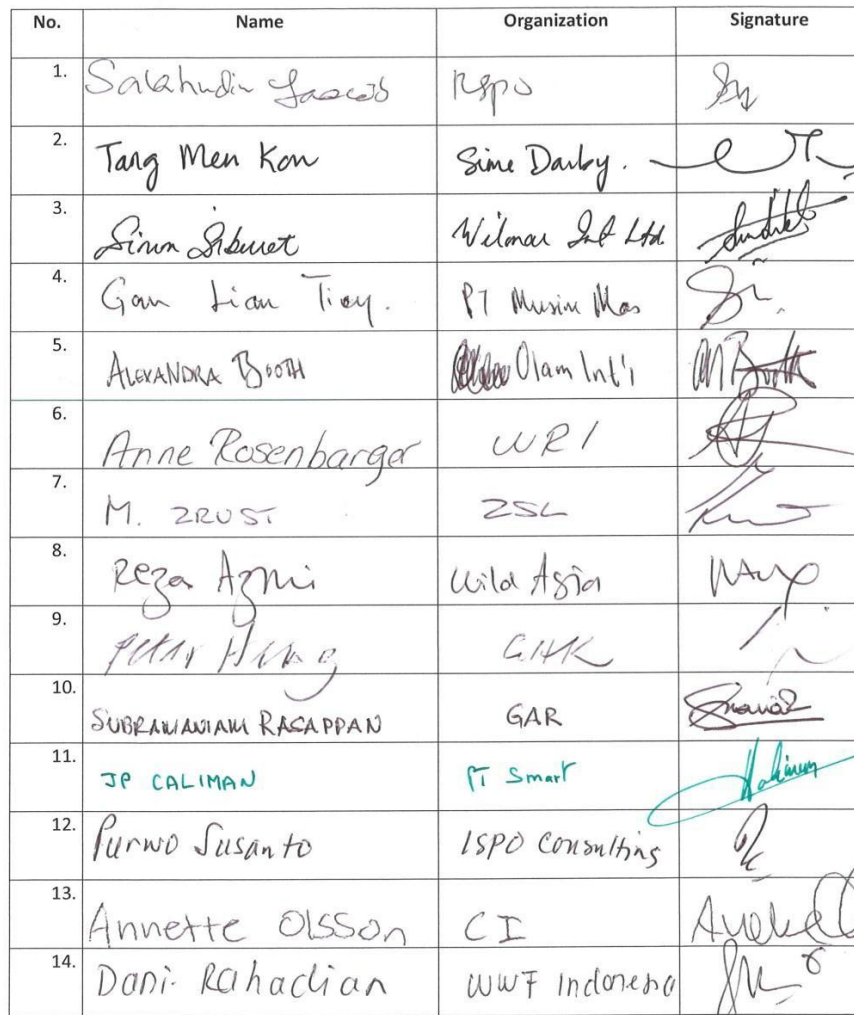 No. Name Organization Signature
1. Salahudin Yaacob RSPO
2. Tang Men Kon Sime Darby.
3. Wilmar Int Ltd
4. Gan Lian Tiong. PT Musim Mas
5. ALEXANDRA BOOTH Olam Int'l
6. Anne Rosenbarger WRI
7. M. ZRUST ZSL
8. Reza Azmi Wild Asia
9. Peter Heng GHK
10. SUBRAMANIAM RASAPPAN GAR
11. JP CALIMAN PT Smart
12. Purwo Susanto ISPO Consulting
13. Annette Olsson CI
14. Dani Rahadian WWF Indonesia